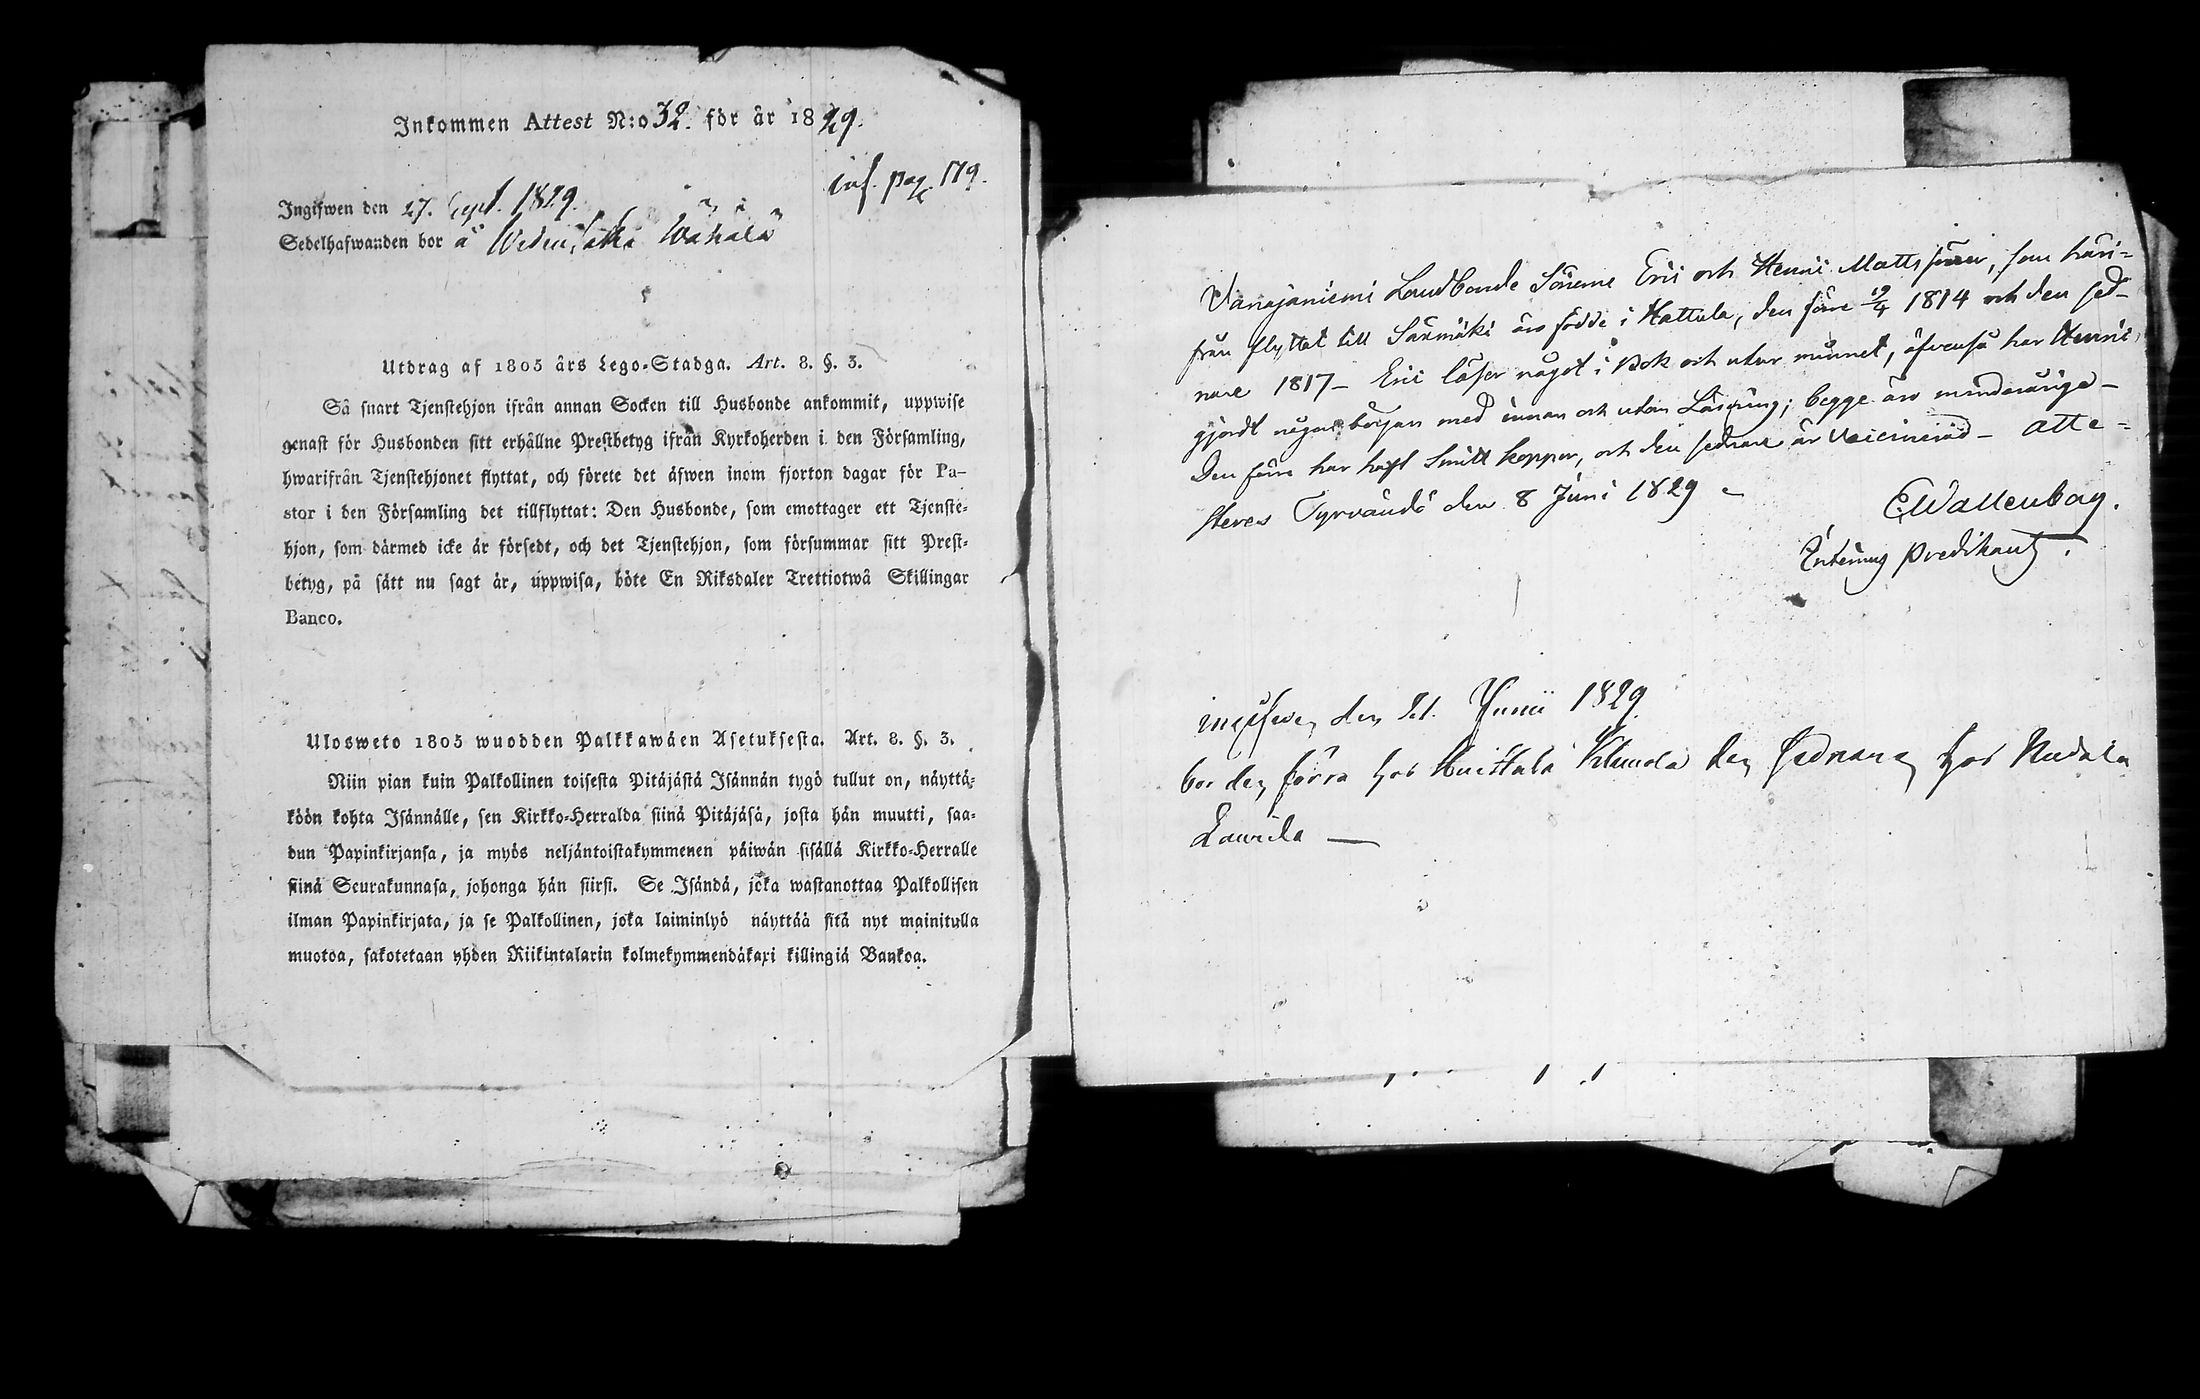 Inkommen Attest N:o 32. för år 1829.
inf. pag. 119.
Ingifwen den 27. Sept. 1829.
Sedelhafwanden bor å Wähälä
Utdrag af 1805 års Lego-Stadga. Art. 8. §. 3.
Så snart Tjenstehjon ifrån annan Socken till Husbonde ankommit, uppwise
genast för Husbonden sitt erhållne Prestbetyg ifrån Kyrkoherden i den Församling,
hwarifrån Tjenstehjonet flyttat, och förete det äfwen inom fjorton dagar för Pa-
stor i den Församling det tillflyttat: Den Husbonde, som emottager ett Tjenste-
hjon, som därmed icke är försedt, och det Tjenstehjon, som försummar sitt Prest-
betyg, på sätt nu sagt är, uppwisa, böte En Riksdaler Trettiotwå Skillingar
Banco.
Ulosweto 1805 wuodden Palkkawäen Asetuksesta. Art. 8. §. 3.
Niin pian kuin Palkollinen toisesta Pitäjästä Isännän tygö tullut on, näyttä-
köön kohta Isännälle, sen Kirkko-Herralda siinä Pitäjäsä, josta hän muutti, saa-
dun Papinkirjansa, ja myös neljäntoistakymmenen päiwän sisällä Kirkko-Herralle
siinä Seurakunnasa, johonga hän siirsi. Se Isändä, joka wastanottaa Palkollisen
ilman Papinkirjata, ja se Palkollinen, joka laiminlyö näyttää sitä nyt mainitulla
muotoa, sakotetaan yhden Riikintalarin kolmekymmendäkaxi killingiä Bankoa.
Vanajaniemi Landbonde Sönerne Eric och Henric Mattssöner, som häri-
från flyttat till Saxmäki äro födde i Hattula, den förre 19/4 1814 och den sed-
nare 1817 - Eric läser något i Bok och utur minnet, äfvenså har Henric
gjordt någon början med innan och utan Läsning; begge äro minderårige -
Den förre har haft Smitt koppor, och den sednare är Vaccinerad - Atte-
steres Tyrvändö den 8 Juni 1829 -
E. Wallenbag.
Predikant.
ingifwen den 21. Junii 1829
bor den förra hos Klemola den sednare hos
Laurila —